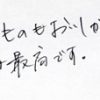 ものもおいしが
最高です。